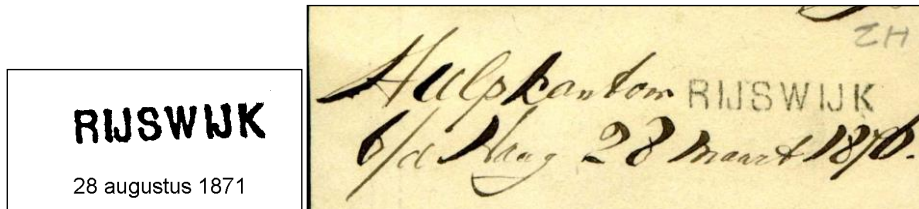 RIJSWIJK
28 augustus 1871
ZH
Hulpkantoor RIJSWIJK
b/d Haag 28 Maart 1870.